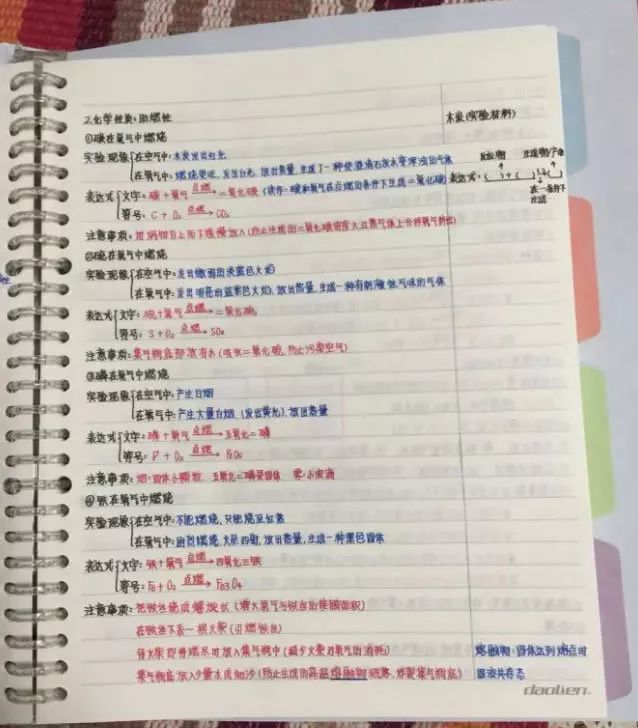 2.化学性质:助燃性
木炭(实验材料)
①碳在氧气中燃烧
实验现象{在空气中:木炭发出红光
在氧气中:燃烧更旺,发出白光,放出热量,生成了一种使澄清石灰水变浑浊的气体
反应物 生成物/产物
表达式{文字:碳+氧气 点燃→二氧化碳(读作:碳和氧气在点燃的条件下生成二氧化碳)
表达式:( )+( )→( )
在一条件下
生成
符号:C+O₂ 点燃→CO₂
注意事项:坩埚钳自上而下缓慢放入(防止生成的二氧化碳密度大且热气体上升将氧气挤出)
②硫在氧气中燃烧
实验现象{在空气中:发出微弱的淡蓝色火焰
在氧气中:发出明亮的蓝紫色火焰,放出热量,生成一种有刺激性气味的气体
表达式{文字:硫+氧气 点燃→二氧化硫
符号:S+O₂ 点燃→SO₂
注意事项:集气瓶底部放有水(吸收二氧化硫,防止污染空气)
③磷在氧气中燃烧
实验现象{在空气中:产生白烟
在氧气中:产生大量白烟(发出黄光),放出热量
表达式{文字:磷+氧气 点燃→五氧化二磷
符号:P+O₂ 点燃→P₂O₅
注意事项:烟:固体小颗粒 五氧化二磷是固体 雾:小液滴
④铁在氧气中燃烧
实验现象{在空气中:不能燃烧,只能烧至红热
在氧气中:剧烈燃烧,火星四射,放出热量,生成一种黑色固体
表达式{文字:铁+氧气 点燃→四氧化三铁
符号:Fe+O₂ 点燃→Fe₃O₄
注意事项:把铁丝绕成螺旋状(增大氧气与铁丝的接触面积)
在铁丝下系一根火柴(引燃铁丝)
待火柴即将燃尽时放入集气瓶中(减少火柴对氧气的消耗)
熔融物:固体达到熔点时
集气瓶底放入少量水或细沙(防止生成的高温熔融物溅落,炸裂集气瓶底)
固液共存态
daolien.